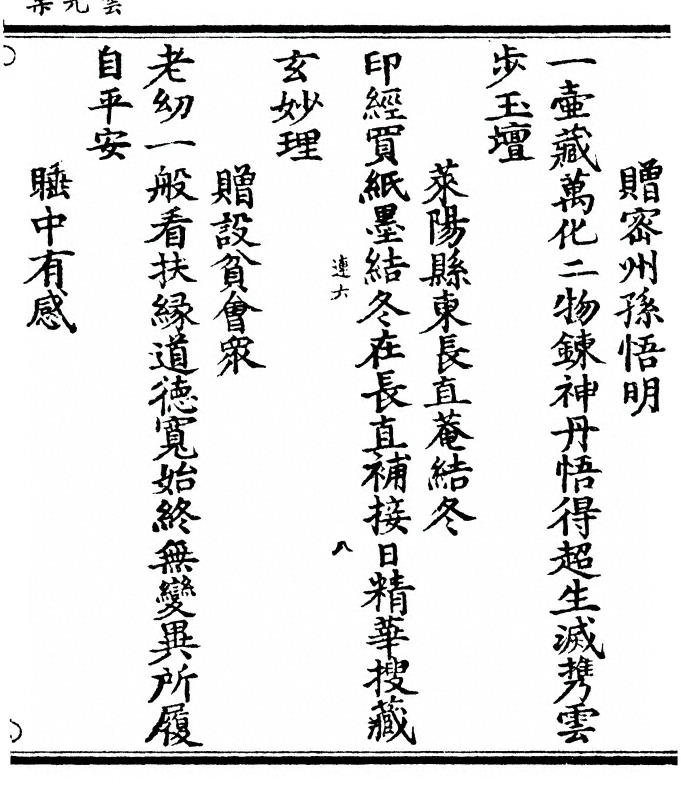 贈密州孫悟明
一壷藏萬化二物鍊神丹悟得超生滅携雲
步玉壇
萊陽縣東長直菴結冬
印經買紙墨結冬在長真補接日精華搜藏
玄妙理
連六
八
贈設貧會眾
老幼一般看扶緣道德寬始終無變異所履
自平安
睡中有感